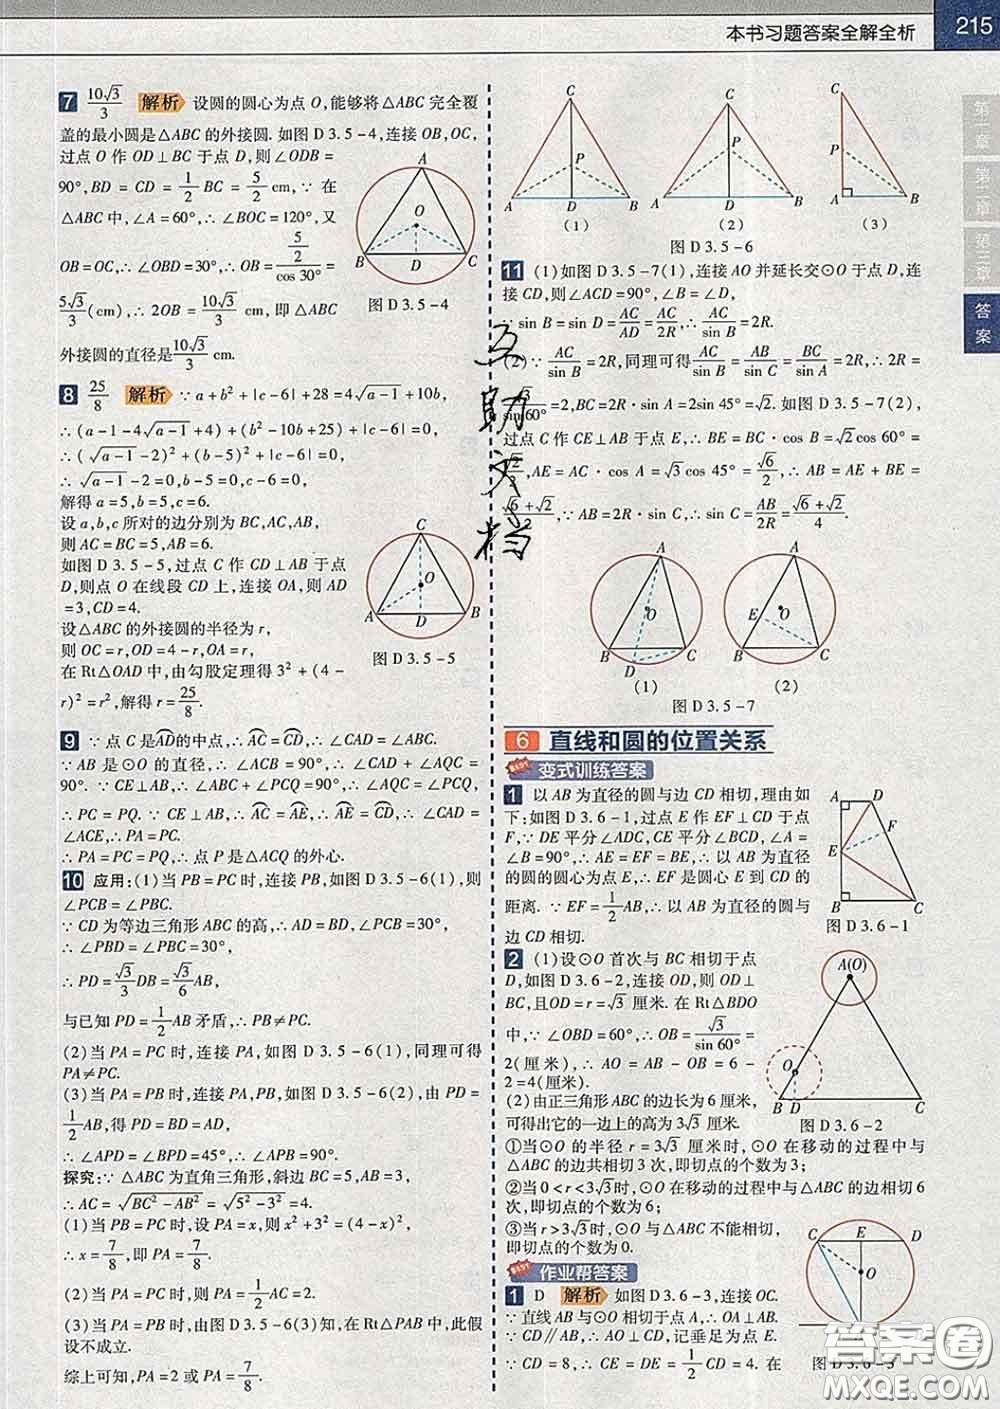 本书习题答案全解全析
215
第一章
第二章
第三章
答案
7 10√3/3 解析 设圆的圆心为点 O,能够将△ABC 完全覆
盖的最小圆是△ABC 的外接圆. 如图 D 3.5-4,连接 OB,OC,
过点 O 作 OD⊥BC 于点 D,则∠ODB =
90°,BD = CD = 1/2 BC = 5/2 cm,∵ 在
△ABC 中,∠A = 60°,∴ ∠BOC = 120°,又
OB = OC,∴ ∠OBD = 30°,∴ OB = (5/2)/cos 30° =
5√3/3 (cm),∴ 2OB = 10√3/3 cm,即△ABC
外接圆的直径是 10√3/3 cm.
A
O
B D C
图 D 3.5-4
8 25/8 解析 ∵ a + b² + |c - 6| + 28 = 4√(a-1) + 10b,
∴ (a - 1 - 4√(a-1) + 4) + (b² - 10b + 25) + |c - 6| = 0,
∴ (√(a-1) - 2)² + (b - 5)² + |c - 6| = 0,
∴ √(a-1) - 2 = 0,b - 5 = 0,c - 6 = 0,
解得 a = 5,b = 5,c = 6.
设 a,b,c 所对的边分别为 BC,AC,AB,
则 AC = BC = 5,AB = 6.
如图 D 3.5-5,过点 C 作 CD⊥AB 于点
D,则点 O 在线段 CD 上,连接 OA,则 AD
= 3,CD = 4.
设△ABC 的外接圆的半径为 r,
则 OC = r,OD = 4 - r,OA = r,
在 Rt△OAD 中,由勾股定理得 3² + (4 -
r)² = r²,解得 r = 25/8.
C
O
A D B
图 D 3.5-5
9 ∵ 点 C 是AD的中点,∴ AC = CD,∴ ∠CAD = ∠ABC.
∵ AB 是⊙O 的直径,∴ ∠ACB = 90°,∴ ∠CAD + ∠AQC =
90°. ∵ CE⊥AB,∴ ∠ABC + ∠PCQ = 90°,∴ ∠AQC = ∠PCQ,
∴ PC = PQ. ∵ CE⊥AB,∴ AC = AE,∴ AE = CD,∴ ∠CAD =
∠ACE,∴ PA = PC.
∴ PA = PC = PQ,∴ 点 P 是△ACQ 的外心.
10 应用:(1)当 PB = PC 时,连接 PB,如图 D 3.5-6(1),则
∠PCB = ∠PBC.
∵ CD 为等边三角形 ABC 的高,∴ AD = BD,∠PCB = 30°,
∴ ∠PBD = ∠PBC = 30°,
∴ PD = √3/3 DB = √3/6 AB,
与已知 PD = 1/2 AB 矛盾,∴ PB ≠ PC.
(2)当 PA = PC 时,连接 PA,如图 D 3.5-6(1),同理可得
PA≠PC.
(3)当 PA = PB 时,连接 PA,PB,如图 D 3.5-6(2),由 PD =
1/2 AB,得 PD = BD = AD,
∴ ∠APD = ∠BPD = 45°,∴ ∠APB = 90°.
探究:∵ △ABC 为直角三角形,斜边 BC = 5,AB = 3,
∴ AC = √(BC² - AB²) = √(5² - 3²) = 4.
(1)当 PB = PC 时,设 PA = x,则 x² + 3² = (4 - x)²,
∴ x = 7/8,即 PA = 7/8.
(2)当 PA = PC 时,则 PA = 1/2 AC = 2.
(3)当 PA = PB 时,由图 D 3.5-6(3)知,在 Rt△PAB 中,此假
设不成立.
综上可知,PA = 2 或 PA = 7/8.
C
P
A D B
(1)
C
P
A D B
(2)
C
P
A B
(3)
图 D 3.5-6
11 (1)如图 D 3.5-7(1),连接 AO 并延长交⊙O 于点 D,连
接 CD,则∠ACD = 90°,∠B = ∠D,
∵ sin B = sin D = AC/AD = AC/2R,∴ AC/sin B = 2R.
(2)∵ AC/sin B = 2R,同理可得 AC/sin B = AB/sin C = BC/sin A = 2R,∴ 2R =
√3/sin 60° = 2,BC = 2R · sin A = 2sin 45° = √2. 如图 D 3.5-7(2),
过点 C 作 CE⊥AB 于点 E,∴ BE = BC · cos B = √2cos 60° =
√2/2,AE = AC · cos A = √3cos 45° = √6/2,∴ AB = AE + BE =
(√6+√2)/2,∵ AB = 2R · sin C,∴ sin C = AB/2R = (√6+√2)/4.
A
O
B D C
(1)
A
O
E
B C
(2)
图 D 3.5-7
互助文档
6 直线和圆的位置关系
变式训练答案
1 以 AB 为直径的圆与边 CD 相切,理由如
下:如图 D 3.6-1,过点 E 作 EF⊥CD 于点
F,∵ DE 平分∠ADC,CE 平分∠BCD,∠A =
∠B = 90°,∴ AE = EF = BE,∴ 以 AB 为直径
的圆的圆心为点 E,∴ EF 是圆心 E 到 CD 的
距离. ∵ EF = 1/2 AB,∴ 以 AB 为直径的圆与
边 CD 相切.
A D
F
E
B C
图 D 3.6-1
2 (1)设⊙O 首次与 BC 相切于点
D,如图 D 3.6-2,连接 OD,则 OD⊥
BC,且 OD = r = √3 厘米. 在 Rt△BDO
中,∵ ∠OBD = 60°,∴ OB = √3/sin 60° =
2(厘米),∴ AO = AB - OB = 6 -
2 = 4(厘米).
(2)由正三角形 ABC 的边长为 6 厘米,
可得出它的一边上的高为 3√3 厘米.
①当⊙O 的半径 r = 3√3 厘米时,⊙O 在移动的过程中与
△ABC 的边共相切 3 次,即切点的个数为 3;
②当 0 < r < 3√3时,⊙O 在移动的过程中与△ABC 的边相切 6
次,即切点的个数为 6;
③当 r > 3√3时,⊙O 与△ABC 不能相切,
即切点的个数为 0.
A(O)
O
B D C
图 D 3.6-2
作业帮答案
1 D 解析 如图 D 3.6-3,连接 OC.
∵ 直线 AB 与⊙O 相切于点 A,∴ OA⊥AB.
∵ CD∥AB,∴ OA⊥CD,记垂足为点 E.
∵ CD = 8,∴ CE = DE = 1/2 CD = 4. 在
C E D
O
图 D 3.6-3
答案圈
MXQE.COM